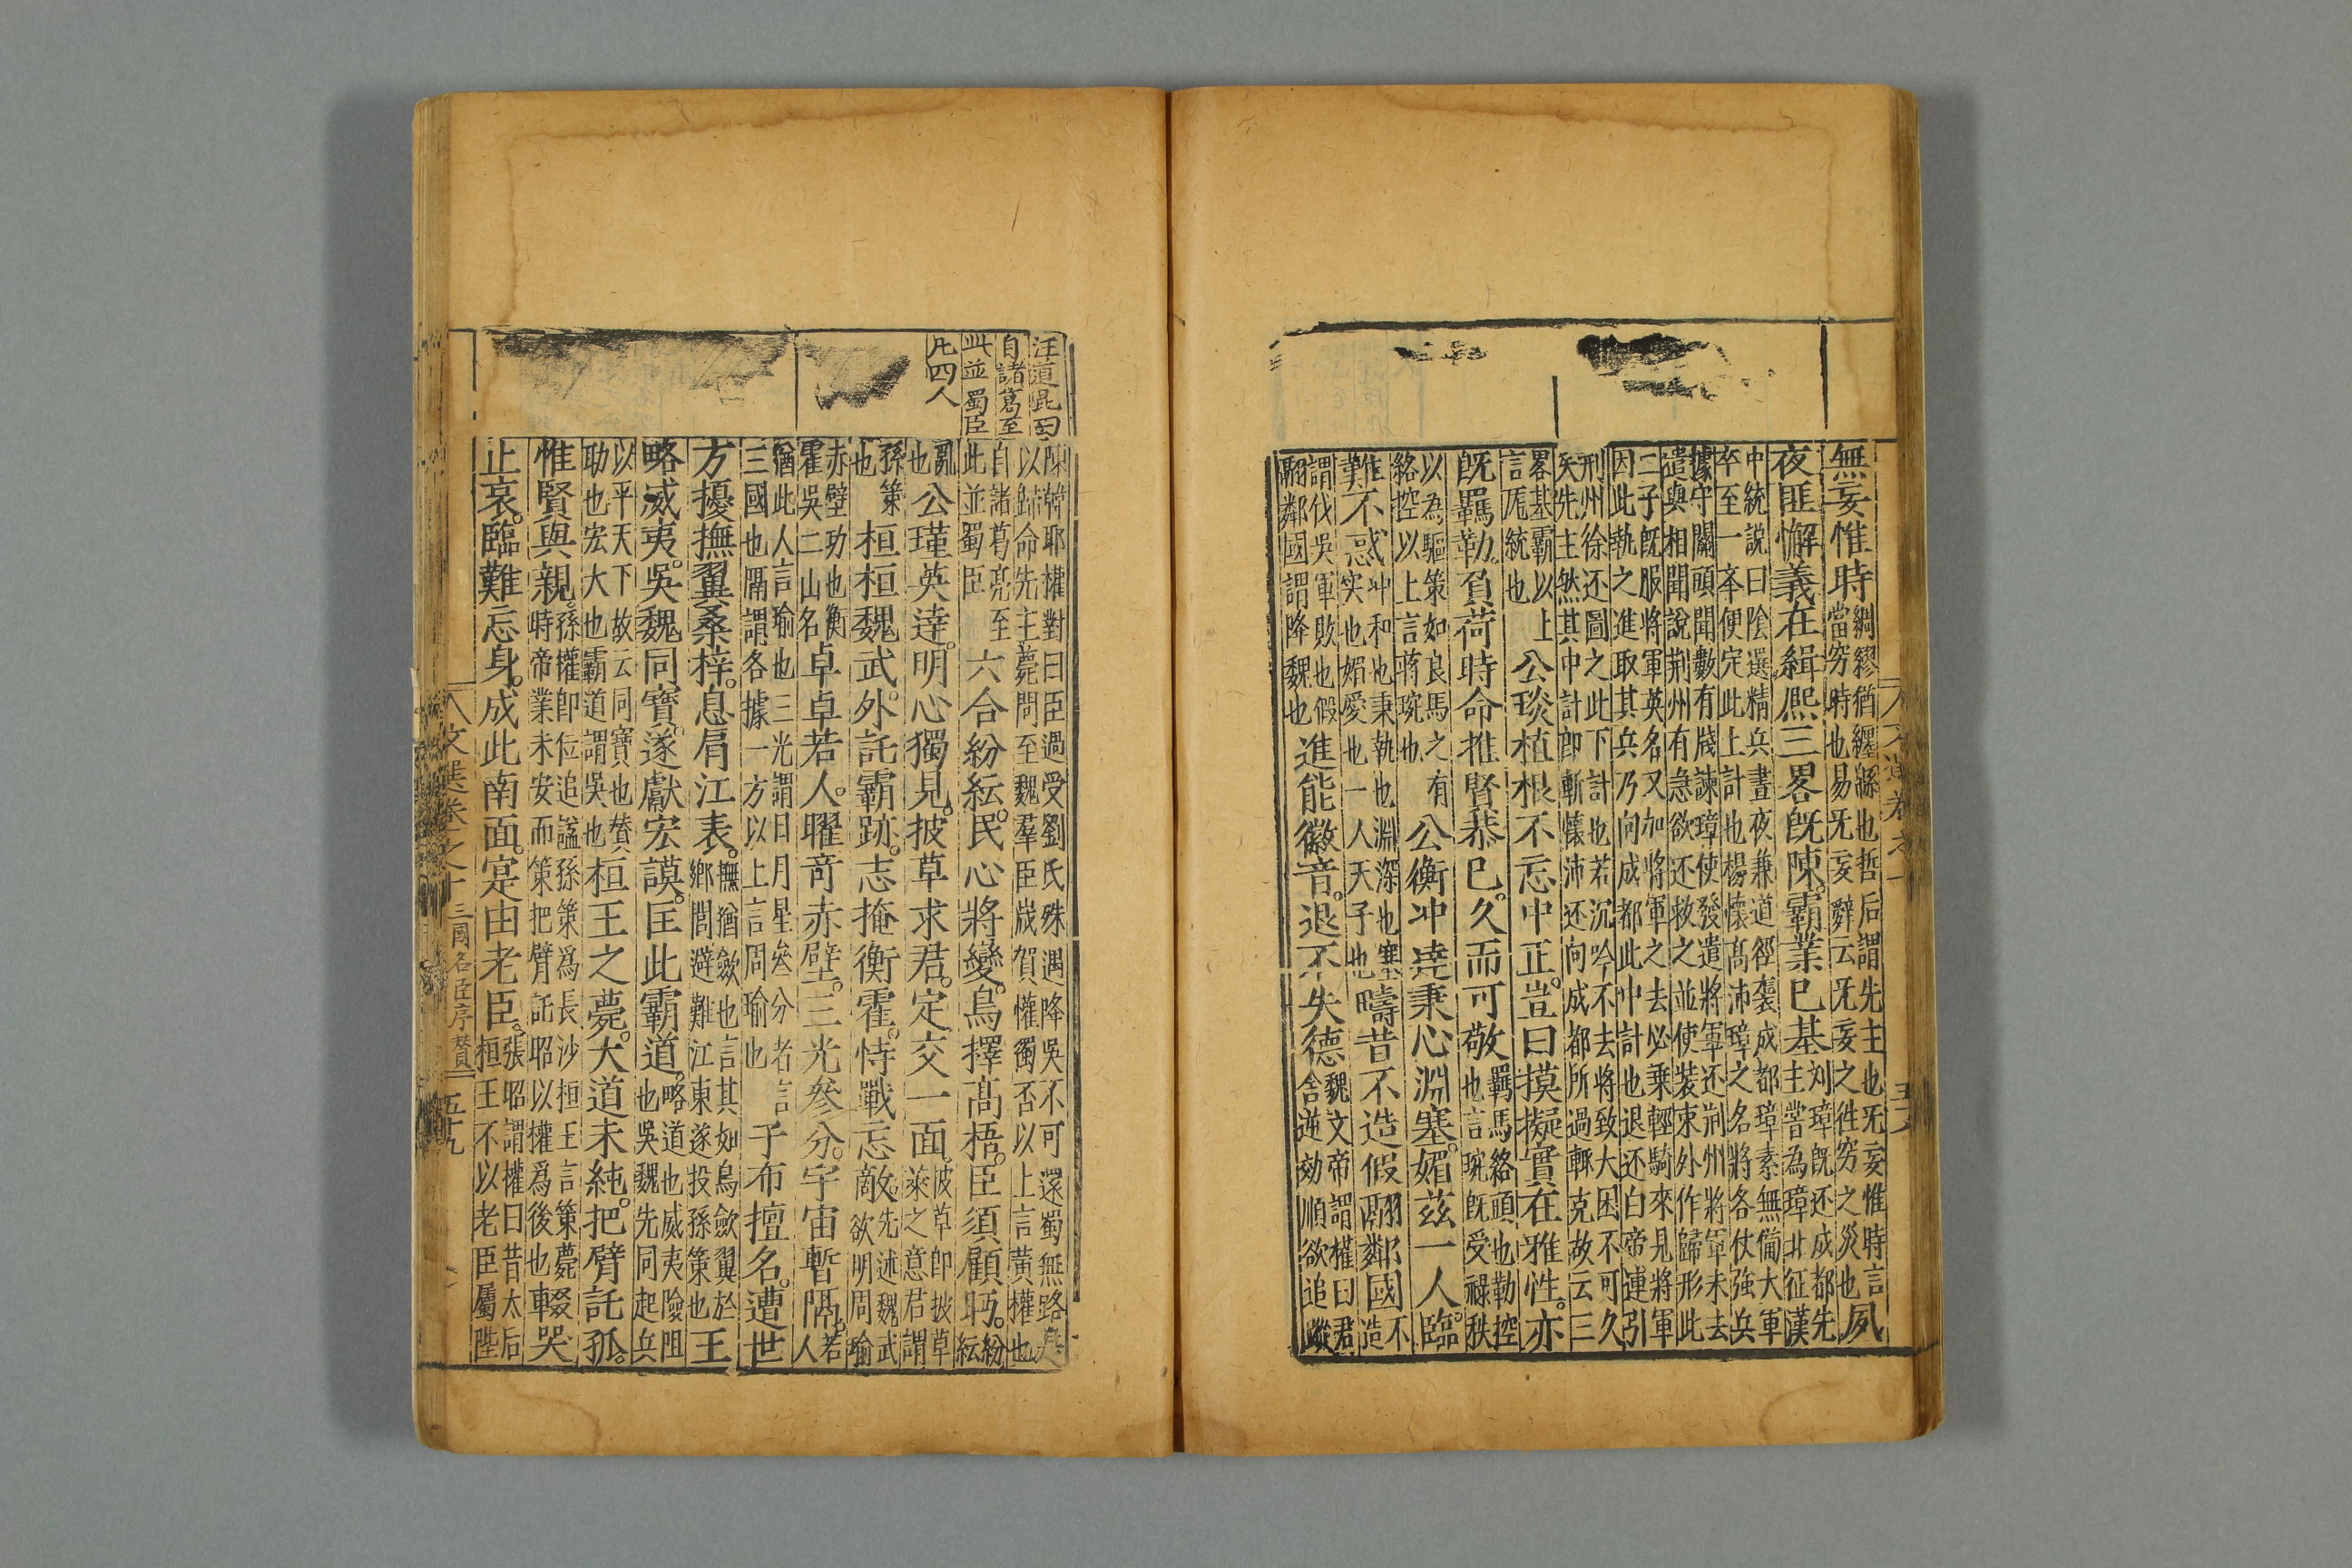 無妄惟時綢繆猶纏緜也哲后謂先主也旡妄惟時言當穷時也易旡妄辭云旡妄之徃穷之災也夙
夜匪懈義在緝熈三畧旣陳霸業已基刘璋旣还成都先主甞為璋北征漢
中統說曰陰選精兵晝夜兼道徑襲成都璋素無備大軍
卒至一夲便定此上計也楊懷髙沛璋之名將各仗強兵
據守關頭聞數有牋諫璋使發遣將軍还荆州將軍未去
遣與相聞說荆州有急欲还救之並使裝束外作歸形此
二子旣服將軍英名又加將軍之去必乗輕騎來見將軍
因此執之進取其兵乃向成都此中計也退还白帝連引
刑州徐还圖之此下計也若沉吟不去將致大困不可久
矣先主然其中計卽斬懷沛还向成都所過輒克故云三
畧基霸以上言厖統也公琰植根不忘中正。豈曰摸擬實在雅性。亦
旣羈勒。負荷時命推賢恭已。久而可敬羈馬絡頭也勒控也言琬旣受禄秩
以為驅策如良馬之有絡控以上言蔣琬也公衡冲逹秉心淵塞。媚茲一人。臨
難不惑冲和也秉執也淵深也塞実也媚愛也一人天子也疇昔不造假翮鄰國不造
謂伐吳軍敗也假翮鄰國謂降魏也進能徽音。退不失德魏文帝謂權曰君舎逆効順欲追蹤
汪道昆曰
自諸葛至
此並蜀臣
凡四人
陳韓耶權對曰臣過受劉氏殊遇降吳不可還蜀無路與
以歸命先主薨問至魏羣臣咸賀權獨否以上言黄權也
自諸葛亮至此並蜀臣六合紛紜。民心將變。鳥擇髙梧。臣須顧眄。紛紜
亂也公瑾英逹。明心獨見。披草求君。定交一面。披草卽披草萊之意君謂
孫策也桓桓魏武。外託霸跡。志掩衡霍。恃戰忘敵。先述魏武欲明周瑜
赤壁功也衡霍吳二山名卓卓若人。曜竒赤壁。三光叅分。宇宙暫隔。若人
猶此人言瑜也三光謂日月星叅分者言三國也隔謂各據一方以上言周瑜也子布擅名。遭世
方擾撫翼桑梓。息肩江表。撫猶歛也言其如鳥歛翼於鄉閭避難江東遂投孫策也王
略威夷。吳魏同寶。遂獻宏謨。匡此霸道。略道也威夷險阻也吳魏先同起兵
以平天下故云同寶也賛助也宏大也霸道謂吳也桓王之薨。大道未純。把臂託孤。
惟賢與親。孫權卽位追謚孫策爲長沙桓王言策薨時帝業未安而策把臂託昭以權爲後也輟哭
止哀。臨難忘身。成此南面。寔由老臣。張昭謂權曰昔太后桓王不以老臣屬陛
文選卷之十 三國名臣序賛 五十九